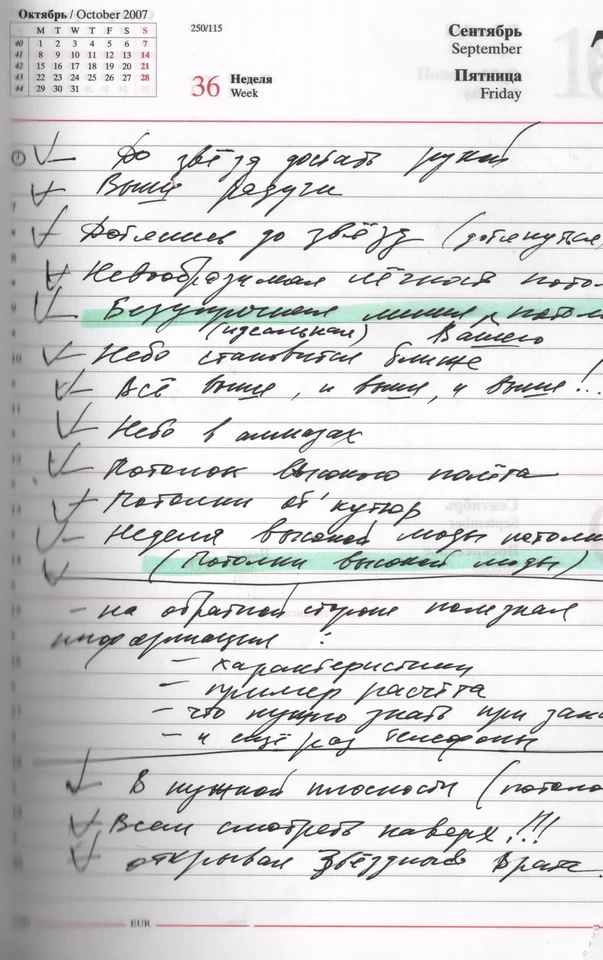 Октябрь / October 2007
M T W T F S S
40 1 2 3 4 5 6 7
41 8 9 10 11 12 13 14
42 15 16 17 18 19 20 21
43 22 23 24 25 26 27 28
44 29 30 31
250/115
36 Неделя
Week
Сентябрь
September
Пятница
Friday
До звёзд достать рукой
Выше радуги
Дотянись до звёзд (дотянуться,
Невообразимая лёгкость пото
Безупречная линия потол
(идеальная) Вашего
Небо становится ближе
Всё выше, и выше, и выше!..
Небо в алмазах
Потолок высокого полёта
Потолки от кутюр
Неделя высокой моды потолк
(Потолки высокой моды)
– на обратной стороне полезная
информация :
– характеристики
– пример расчёта
– что нужно знать при зака
– и ещё раз телефоны
В нужной плоскости (потоло
Всем смотреть наверх!!!
открывая звёздные врата.
EUR